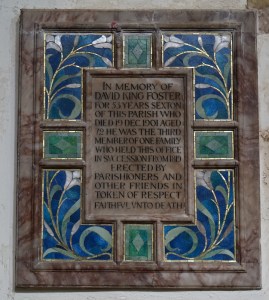 IN MEMORY OF
DAVID KING FOSTER
FOR 53 YEARS SEXTON
OF THIS PARISH WHO
DIED 19 DEC 1901 AGED
72 HE WAS THE THIRD
MEMBER OF ONE FAMILY
WHO HELD THIS OFFICE
IN SUCCESSION FROM
ERECTED BY
PARISHIONERS AND
OTHER FRIENDS IN
TOKEN OF RESPECT
FAITHFUL UNTO DEATH